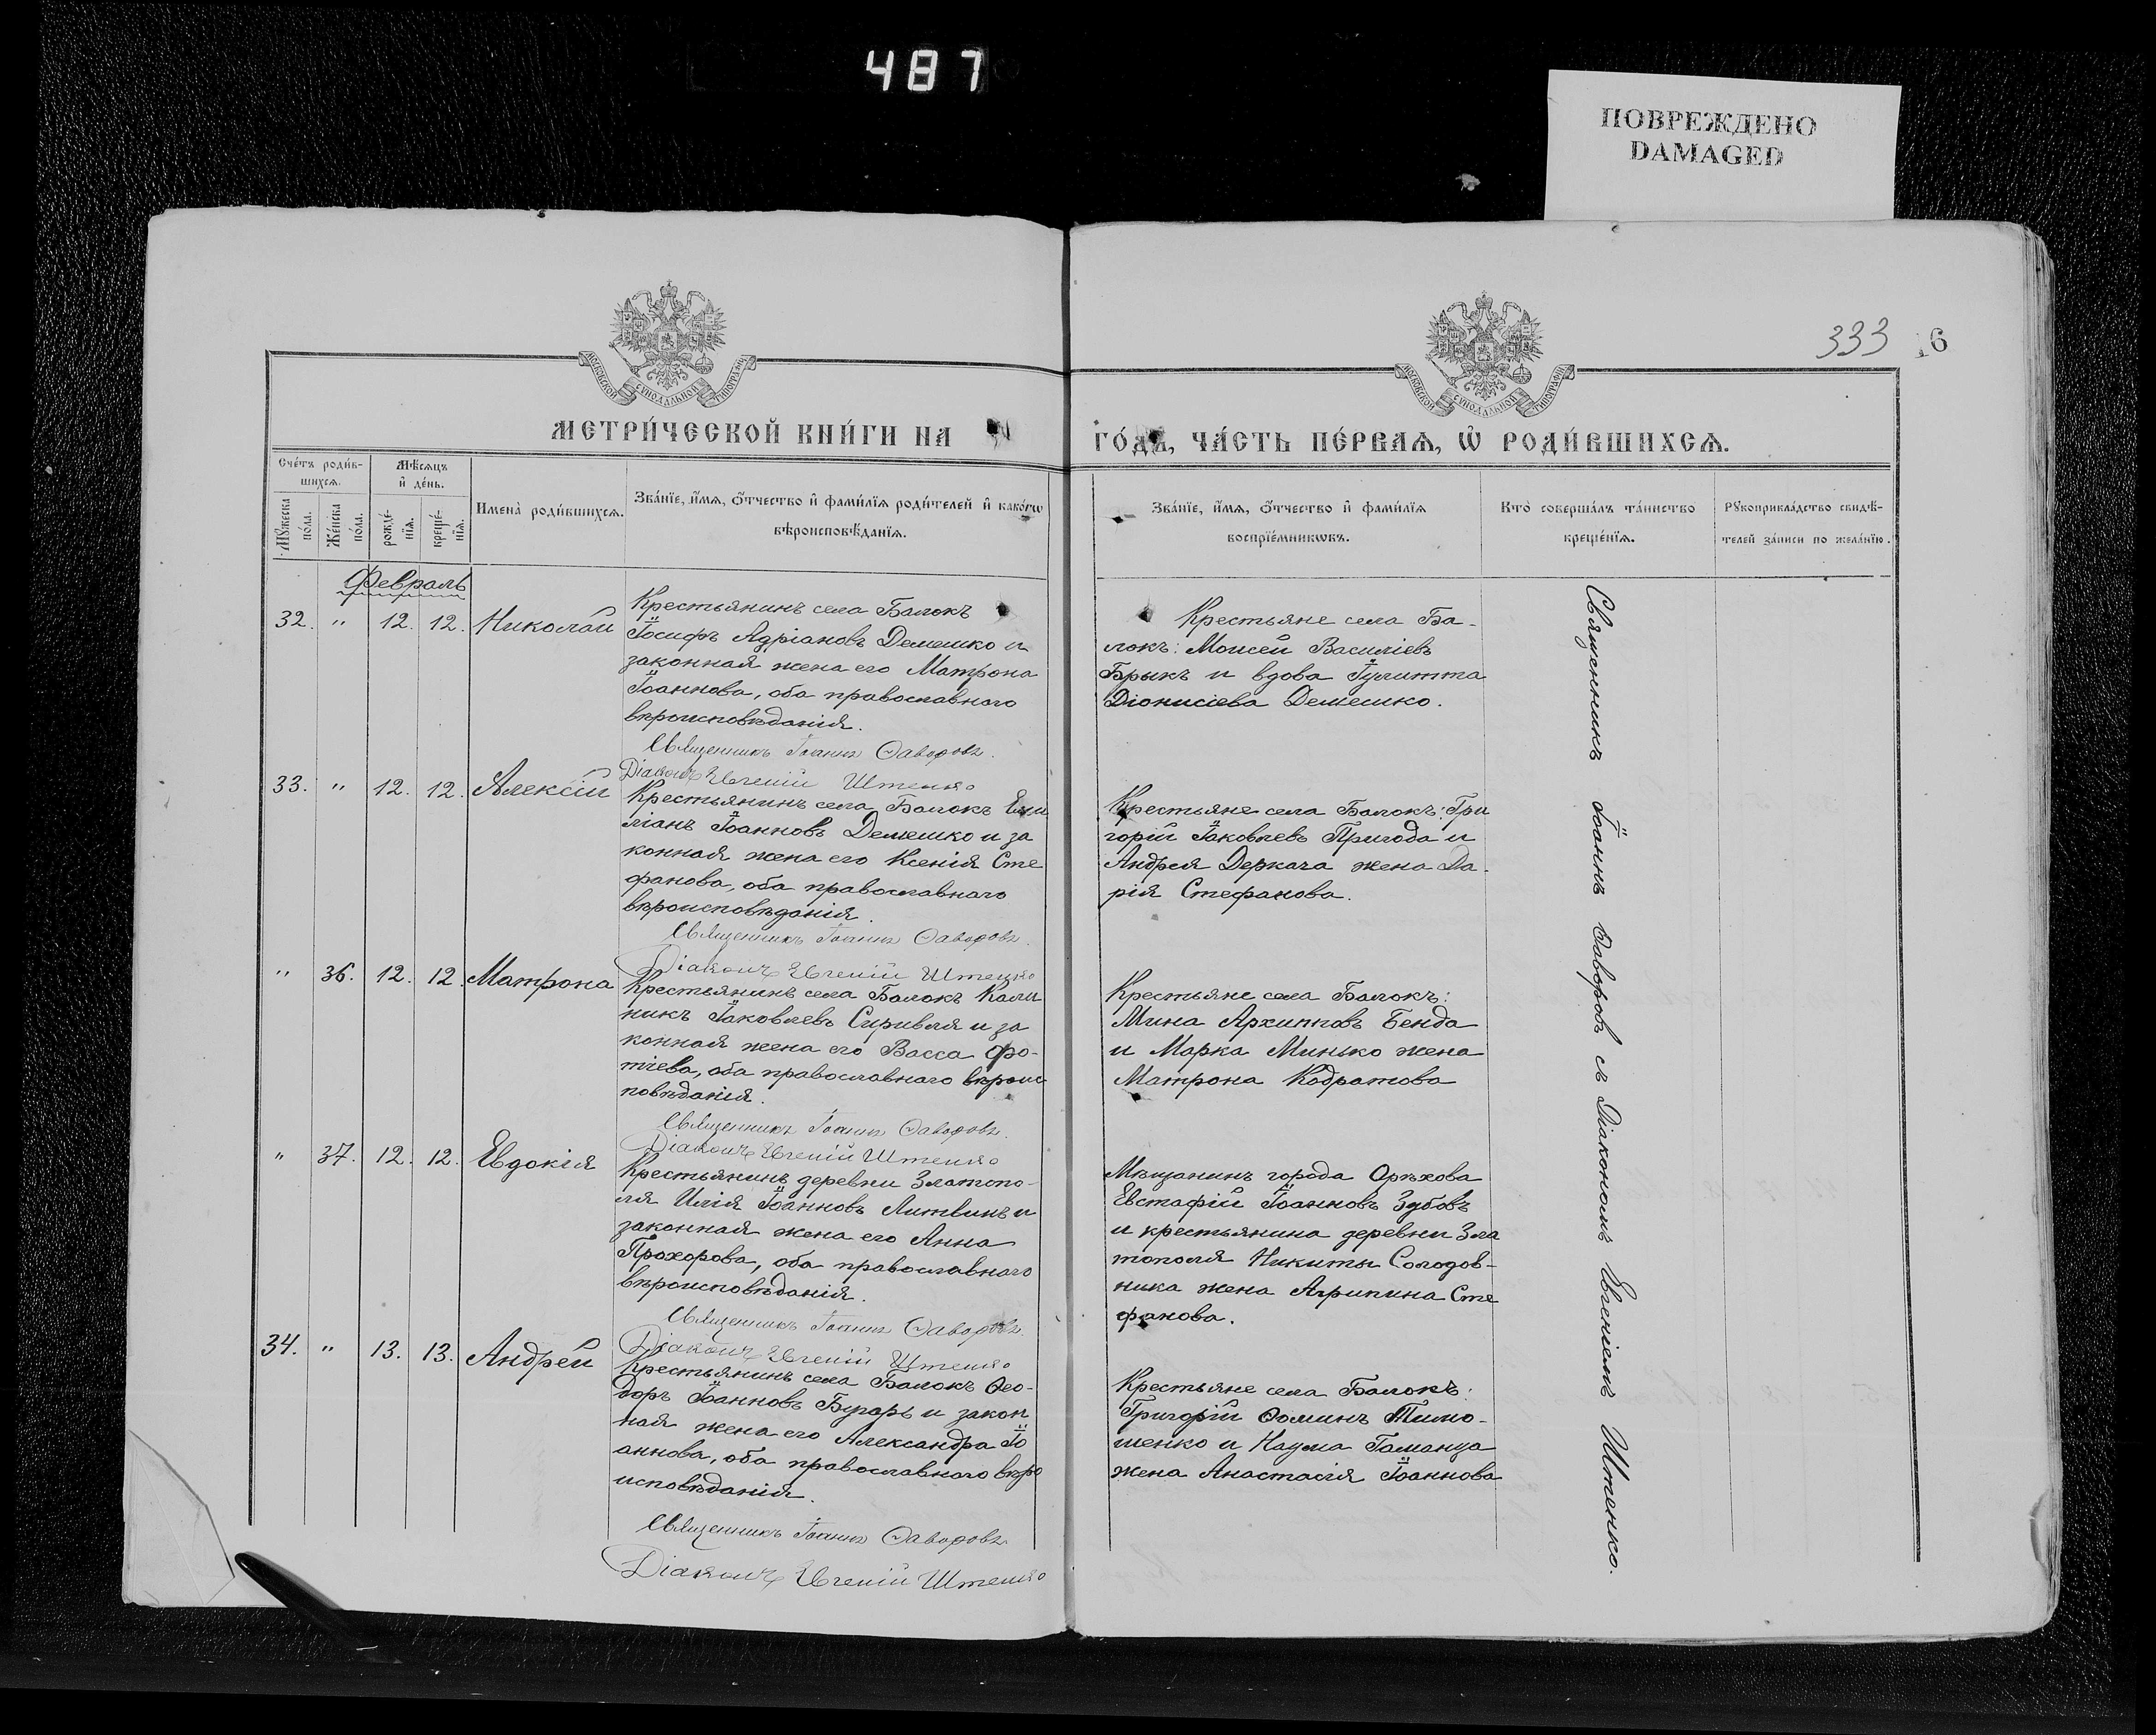 487
ПОВРЕЖДЕНО
DAMAGED
333 16
МОСКОВСКОЙ СѴНОДАЛЬНОЙ ТИПОГРАФІИ
МОСКОВСКОЙ СѴНОДАЛЬНОЙ ТИПОГРАФІИ
МЕТРИ́ЧЕСКОЙ КНИ́ГИ НА
ГО́ДЪ, ЧА́СТЬ ПЕ́РВАѦ, Ѡ҆ РОДИ́ВШИХСѦ.
Сче́тъ роди́в-
шихсѧ.
Мꙋ́жеска по́ла.
Же́нска по́ла.
Мѣ́сѧцъ
и҆ де́нь.
рожде́-
нїѧ.
креще́-
нїѧ.
Имена̀ роди́вшихсѧ.
Зва́нїе, и҆́мѧ, ѻ҆́тчество и҆ фами́лїѧ роди́телей и҆ како́гѡ
вѣроисповѣ́данїѧ.
Зва́нїе, и҆́мѧ, ѻ҆́тчество и҆ фами́лїѧ
воспрїе́мникѡвъ.
Кто̀ соверша́лъ та́инство
креще́нїѧ.
Рꙋкоприкла́дство свидѣ́-
телей за́писи по жела́нїю.
Февраль
32. " 12. 12. Николай
Крестьянинъ села Балокъ
Іосифъ Адріановъ Демешко и
законная жена его Матрона
Іоаннова, оба православнаго
вѣроисповѣданія.
Священникъ Іоаннъ Ѳаворовъ.
Діаконъ Евгеній Штенко
Крестьяне села Ба-
локъ: Моисей Василіевъ
Брыкъ и вдова Іулитта
Діонисіева Демешко.
33. " 12. 12. Алексій
Крестьянинъ села Балокъ Еми
ліанъ Іоанновъ Демешко и за
конная жена его Ксенія Сте
фанова, оба православнаго
вѣроисповѣданія.
Священникъ Іоаннъ Ѳаворовъ.
Діаконъ Евгеній Штенко
Крестьяне села Балокъ: Гри
горій Іаковлевъ Пригода и
Андрея Деркача жена Да-
рія Стефанова.
" 36. 12. 12. Матрона
Крестьянинъ села Балокъ Кали
никъ Іаковлевъ Сиривля и за
конная жена его Васса Фо-
тіева, оба православнаго вѣроис
повѣданія.
Священникъ Іоаннъ Ѳаворовъ.
Діаконъ Евгеній Штенко
Крестьяне села Балокъ:
Мина Архиповъ Бенда
и Марка Минько жена
Матрона Кодратова
" 37. 12. 12. Евдокія
Крестьянинъ деревни Златопо-
ля Илія Іоанновъ Литвинъ и
законная жена его Анна
Прохорова, оба православнаго
вѣроисповѣданія.
Священникъ Іоаннъ Ѳаворовъ.
Діаконъ Евгеній Штенко
Мѣщанинъ города Орѣхова
Евстафій Іоанновъ Зубовъ
и крестьянина деревни Зла
тополя Никиты Солодов-
ника жена Агрипина Сте
фанова.
34. " 13. 13. Андрей
Крестьянинъ села Балокъ Ѳео-
доръ Іоанновъ Бугарь и закон
ная жена его Александра Іо
аннова, оба православнаго вѣро
исповѣданія.
Священникъ Іоаннъ Ѳаворовъ.
Діаконъ Евгеній Штенко
Крестьяне села Балокъ:
Григорій Ѳоминъ Тимо-
шенко и Наума Гаманца
жена Анастасія Іоаннова
Священникъ Іоаннъ Ѳаворовъ съ Діакономъ Евгеніемъ Штенко.